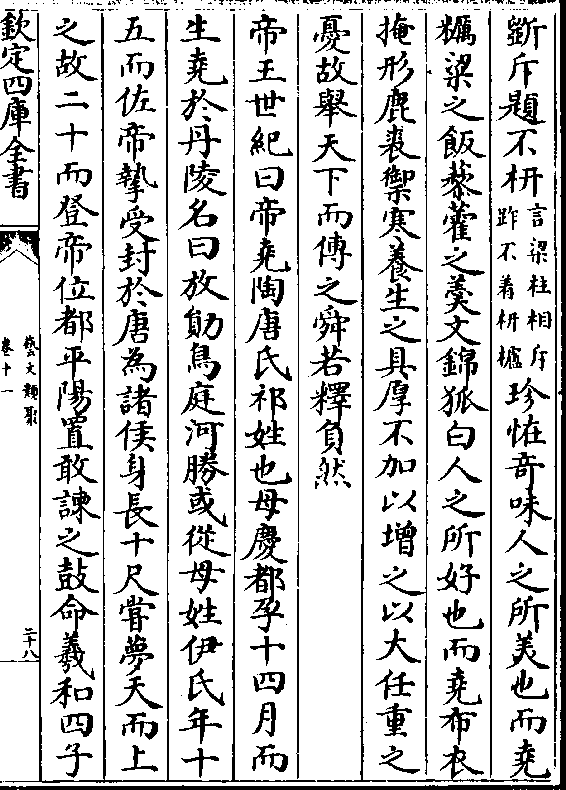 斲斥題不枅言梁柱相斥距不着枅櫨珍恠奇味人之所美也而堯
糲粢之飯藜藿之羮文錦狐白人之所好也而堯布衣
掩形鹿裘禦寒養生之具厚不加以增之以大任重之
憂故舉天下而傳之舜若釋負然
帝王世紀曰帝堯陶唐氏祁姓也母慶都孕十四月而
生堯於丹陵名曰放勛鳥庭河勝或從母姓伊氏年十
五而佐帝摯受封於唐為諸侯身長十尺嘗夢天而上
之故二十而登帝位都平陽置敢諫之鼓命羲和四子
欽定四庫全書
藝文類聚
卷十一
二十八